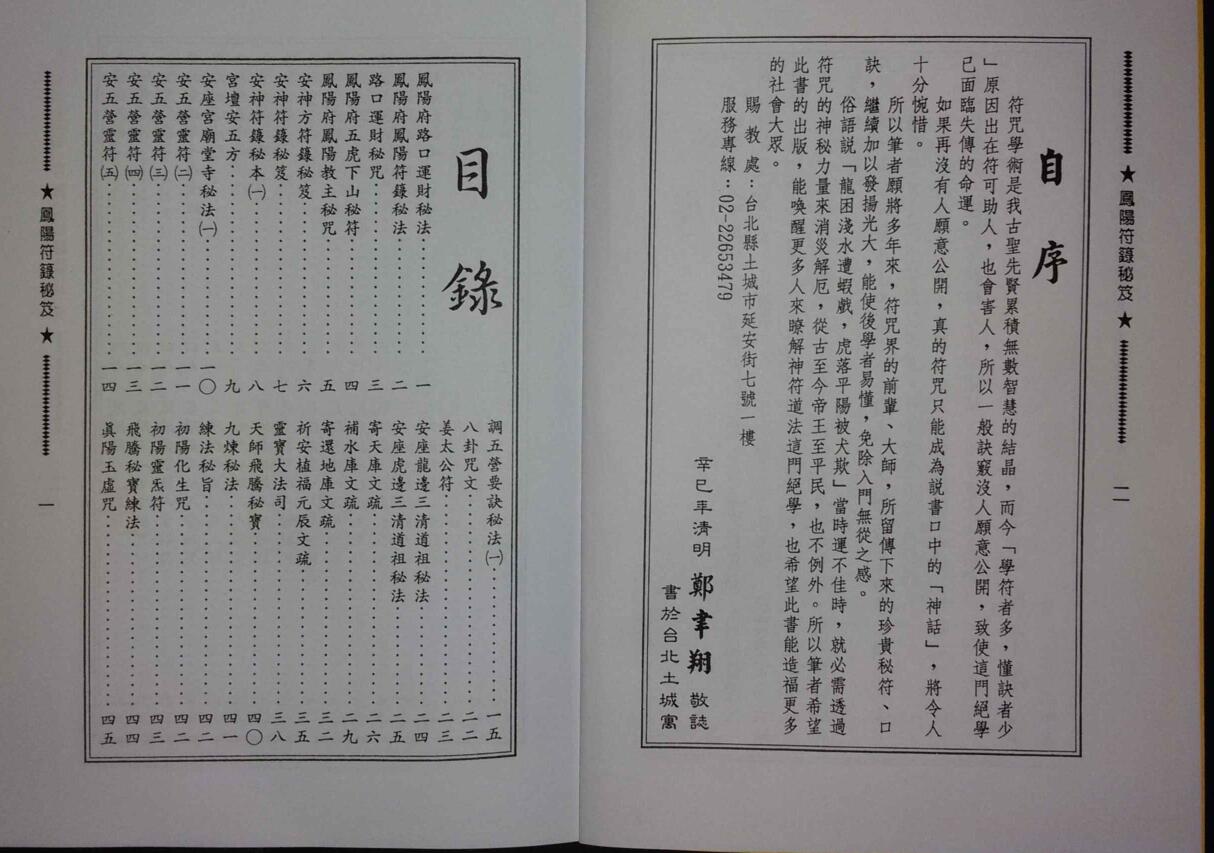 ★ 鳳陽符籙秘笈 ★
二
自序
符咒學術是我古聖先賢累積無數智慧的結晶，而今「學符者多，懂訣者少
」原因出在符可助人，也會害人，所以一般訣竅沒人願意公開，致使這門絕學
已面臨失傳的命運。
如果再沒有人願意公開，真的符咒只能成為説書口中的「神話」，將令人
十分惋惜。
所以筆者願將多年來，符咒界的前輩、大師，所留傳下來的珍貴秘符、口
訣，繼續加以發揚光大，能使後學者易懂，免除入門無從之感。
俗語説「龍困淺水遭蝦戲，虎落平陽被犬欺」當時運不佳時，就必需透過
符咒的神秘力量來消災解厄，從古至今帝王至平民，也不例外。所以筆者希望
此書的出版，能喚醒更多人來暸解神符道法這門絕學，也希望此書能造福更多
的社會大眾。
賜教處：台北縣土城市延安街七號一樓
服務專線：02-22653479
辛巳年清明 鄭聿翔 敬誌
書於台北土城寓
目錄
鳳陽府路口運財秘法 一
鳳陽府鳳陽符籙秘法 二
路口運財秘咒 三
鳳陽府五虎下山秘符 四
鳳陽府鳳陽教主秘咒 五
安神方符籙秘笈 六
安神符籙秘笈 七
安神符籙秘本㈠ 八
宮壇安五方 九
安座宮廟堂寺秘法㈠ 一〇
安五營靈符㈡ 一一
安五營靈符㈢ 一二
安五營靈符㈣ 一三
安五營靈符㈤ 一四
調五營要訣秘法㈠ 一五
八卦咒文 二二
姜太公符 二三
安座龍邊三清道祖秘法 二四
安座虎邊三清道祖秘法 二五
寄天庫文疏 二六
補水庫文疏 二九
寄還地庫文疏 三二
祈安植福元辰文疏 三五
靈寶大法司 三八
天師飛騰秘寶 四〇
九煉秘法 四一
練法秘旨 四二
初陽化生咒 四二
初陽靈炁符 四三
飛騰秘寶練法 四四
真陽玉虛咒 四五
★ 鳳陽符籙秘笈 ★
一